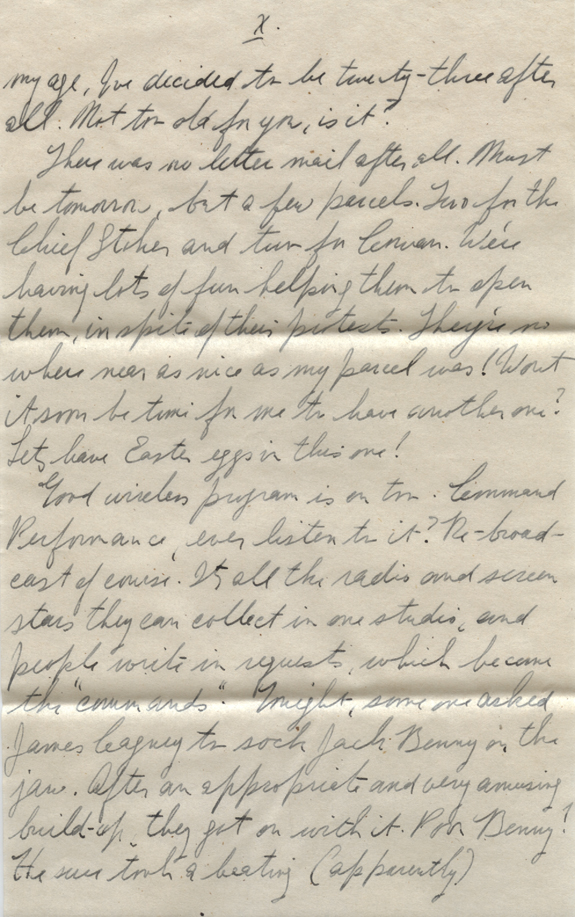 X.
my age, I've decided to be twenty-three after
all. Not too old for you, is it?
There was no letter mail after all. Must
be tomorrow, but a few parcels. Two for the
Chief Stoker and two for Cowan. We're
having lots of fun helping them to open
them, in spite of their protests. They're no
where near as nice as my parcel was! Won't
it soon be time for me to have another one?
Lets have Easter eggs in this one!
Good wireless program is on too. Command
Performance, ever listen to it? Re-broad-
cast of course. It's all the radio and screen
stars they can collect in one studio, and
people write in requests, which become
the "commands". Tonight, some one asked
James Cagney to sock Jack Benny on the
jaw. After an appropriate and very amusing
build-up, they got on with it. Poor Benny!
He sure took a beating (apparently)